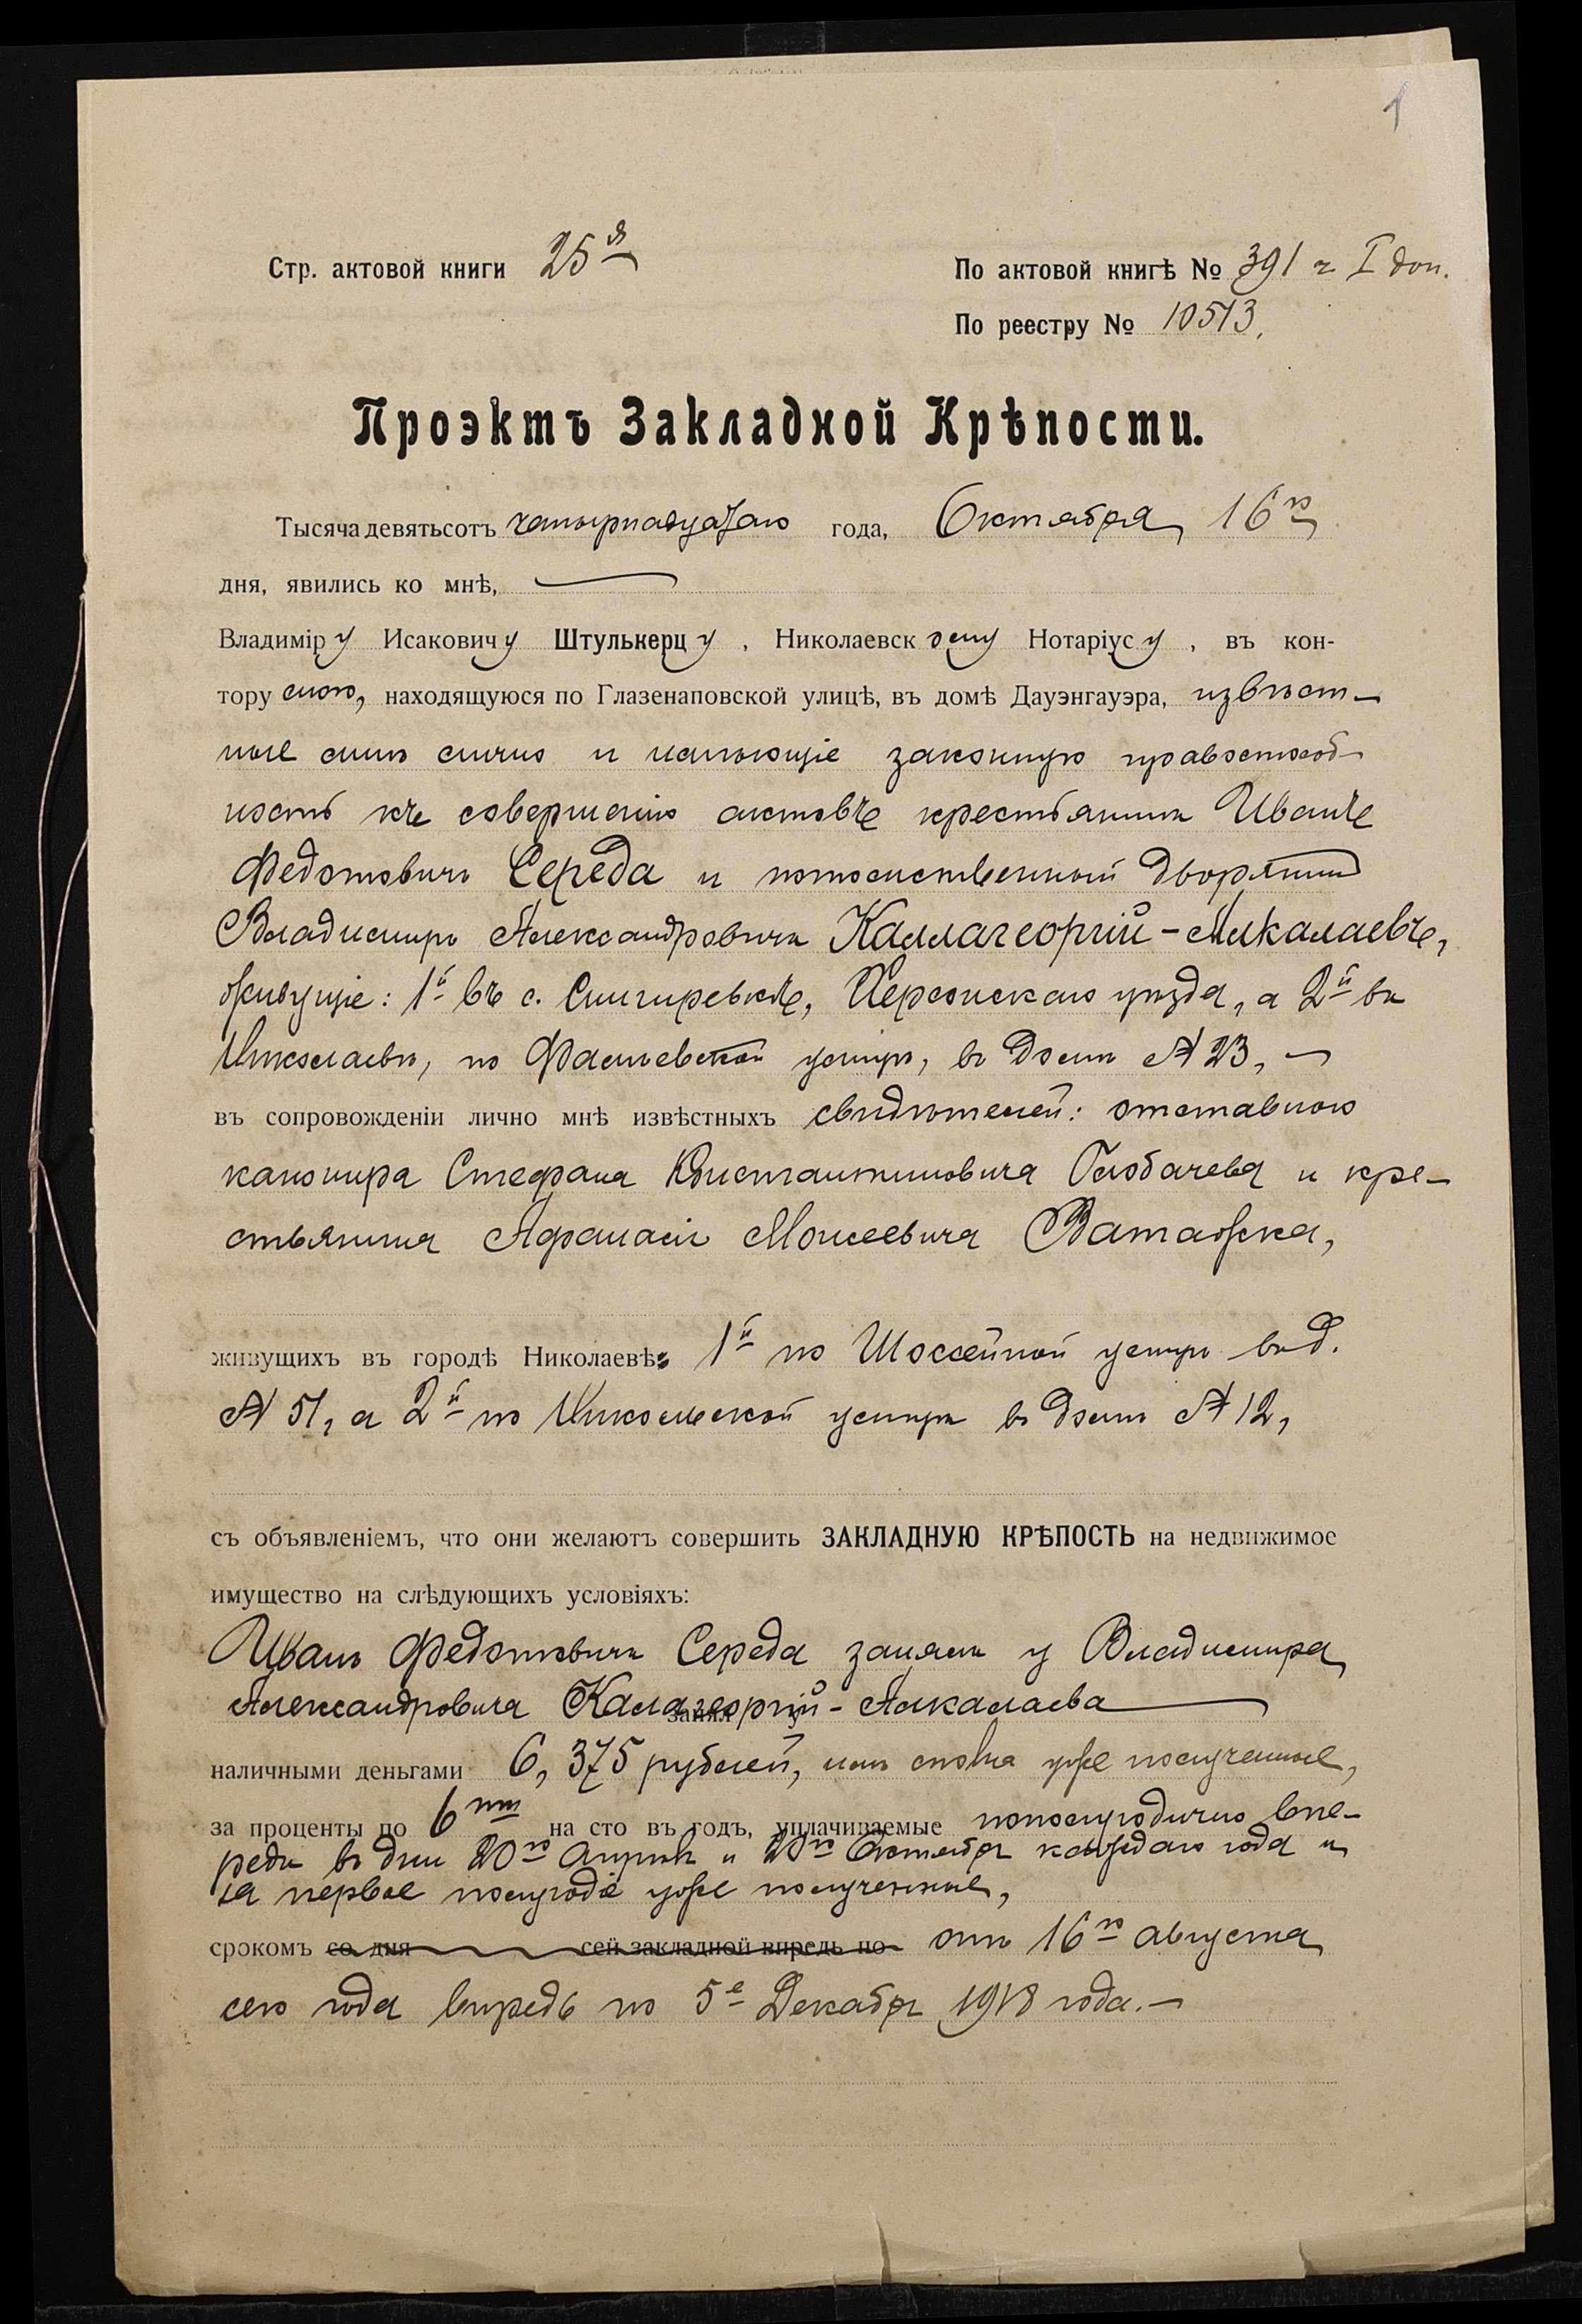 1
Стр. актовой книги 25я
По актовой книгѣ № 391 ч I доп.
По реестру № 10513.
Проэктъ Закладной Крѣпости.
Тысяча девятьсотъ четырнадцатаго года, Октября 16го
дня, явились ко мнѣ,
Владиміру Исаковичу Штулькерцу, Николаевскому Нотаріусу, въ кон-
тору мою, находящуюся по Глазенаповской улицѣ, въ домѣ Дауэнгауэра, извѣст-
ные мнѣ лично и имѣющіе законную правоспособ-
ность къ совершенію актовъ крестьянинъ Иванъ
Федотовичъ Середа и потомственный дворянинъ
Владимиръ Александровичъ Каллагеоргій-Алкалаевъ,
живущіе: 1й въ с. Снигиревкѣ, Херсонскаго уѣзда, а 2й въ
Николаевѣ, по Фалѣевской улицѣ, въ домѣ № 23,
въ сопровожденіи лично мнѣ извѣстныхъ свидѣтелей: отставного
канонира Стефана Константиновича Глобачева и кре-
стьянина Афанасія Моисеевича Ватажка,
живущихъ въ городѣ Николаевѣ: 1й по Шоссейной улицѣ въ д.
№ 51, а 2й по Никольской улицѣ въ домѣ № 12,
съ объявленіемъ, что они желаютъ совершить ЗАКЛАДНУЮ КРѢПОСТЬ на недвижимое
имущество на слѣдующихъ условіяхъ:
Иванъ Федотовичъ Середа занялъ у Владимира
Александровича Калагеоргій-Алкалаева
наличными деньгами 6,375 рублей, имъ сполна уже полученные,
за проценты по 6ти на сто въ годъ, уплачиваемые полугодично впе-
редъ въ дни 20го Апрѣля и 20го Октября каждаго года и
за первое полугодіе уже полученные,
срокомъ со дня сей закладной впредь по отъ 16го августа
сего года впредь по 5е Декабря 1918 года.